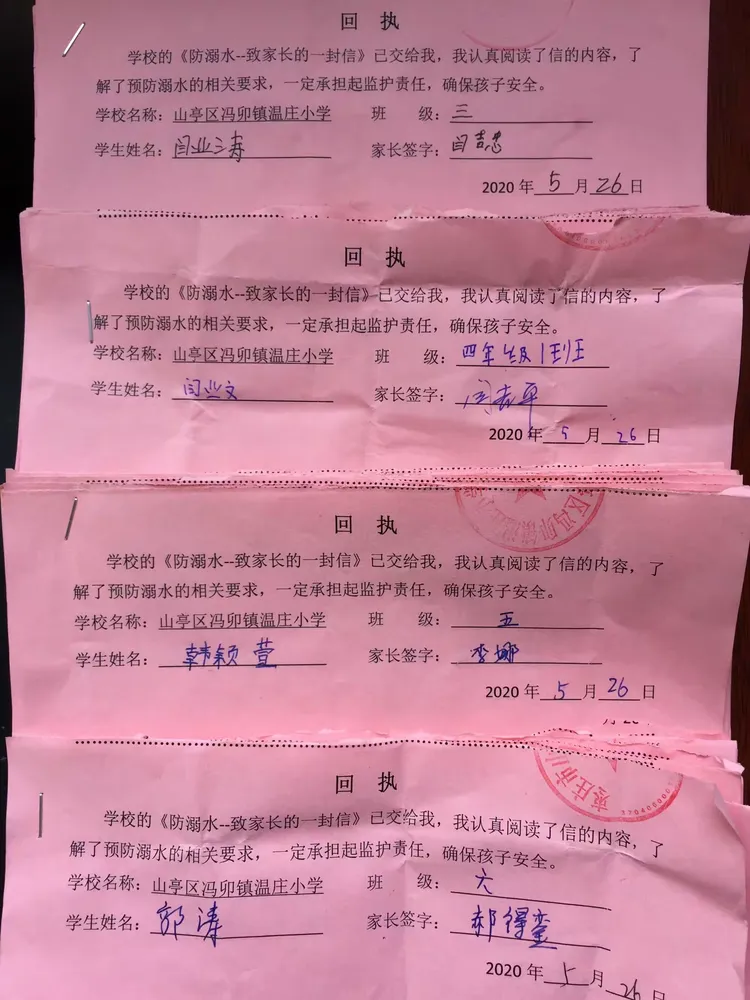 回 执
学校的《防溺水--致家长的一封信》已交给我，我认真阅读了信的内容，了
解了预防溺水的相关要求，一定承担起监护责任，确保孩子安全。
学校名称：山亭区冯卯镇温庄小学 班 级：三
学生姓名：闫业涛 家长签字：
2020年 5 月 26 日
回 执
学校的《防溺水--致家长的一封信》已交给我，我认真阅读了信的内容，了
解了预防溺水的相关要求，一定承担起监护责任，确保孩子安全。
学校名称：山亭区冯卯镇温庄小学 班 级：四年级1班
学生姓名：闫业文 家长签字：
2020年 5 月 26 日
区冯卯镇温
回 执
学校的《防溺水--致家长的一封信》已交给我，我认真阅读了信的内容，了
解了预防溺水的相关要求，一定承担起监护责任，确保孩子安全。
学校名称：山亭区冯卯镇温庄小学 班 级：五
学生姓名：韩颖萱 家长签字：李娜
2020年 5 月 26 日
枣庄市山
回 执
学校的《防溺水--致家长的一封信》已交给我，我认真阅读了信的内容，了
解了预防溺水的相关要求，一定承担起监护责任，确保孩子安全。
学校名称：山亭区冯卯镇温庄小学 班 级：六
学生姓名：郭涛 家长签字：郝得銮
2020年 5 月 26 日